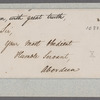 with great truth,
Sir,
Your Most Obedient
Humble Servant,
Aberdeen